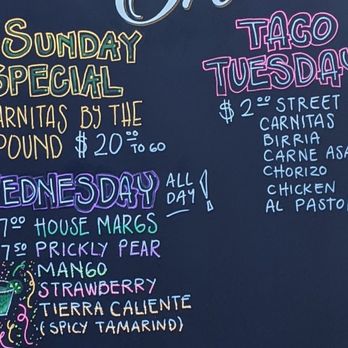 SUNDAY
SPECIAL
CARNITAS BY THE
POUND $20.00 TO GO
WEDNESDAY ALL DAY!
7.00 HOUSE MARGS
7.50 PRICKLY PEAR
MANGO
STRAWBERRY
TIERRA CALIENTE
(SPICY TAMARIND)
TACO
TUESDAY
$2.00 STREET
CARNITAS
BIRRIA
CARNE ASA
CHORIZO
CHICKEN
AL PASTO